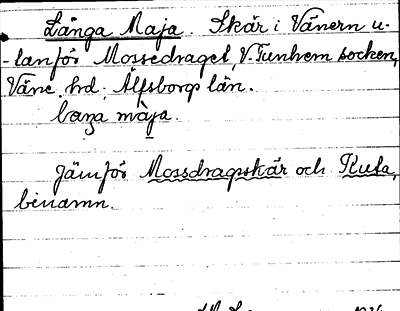 Långa Maja. Skär i Vänern u-
-tanför Mossedraget, V. Tunhem socken,
Väne hd, Älfsborgs län.
laŋa màja.
Jämför Mossdragsskär och Kusa,
binamn.